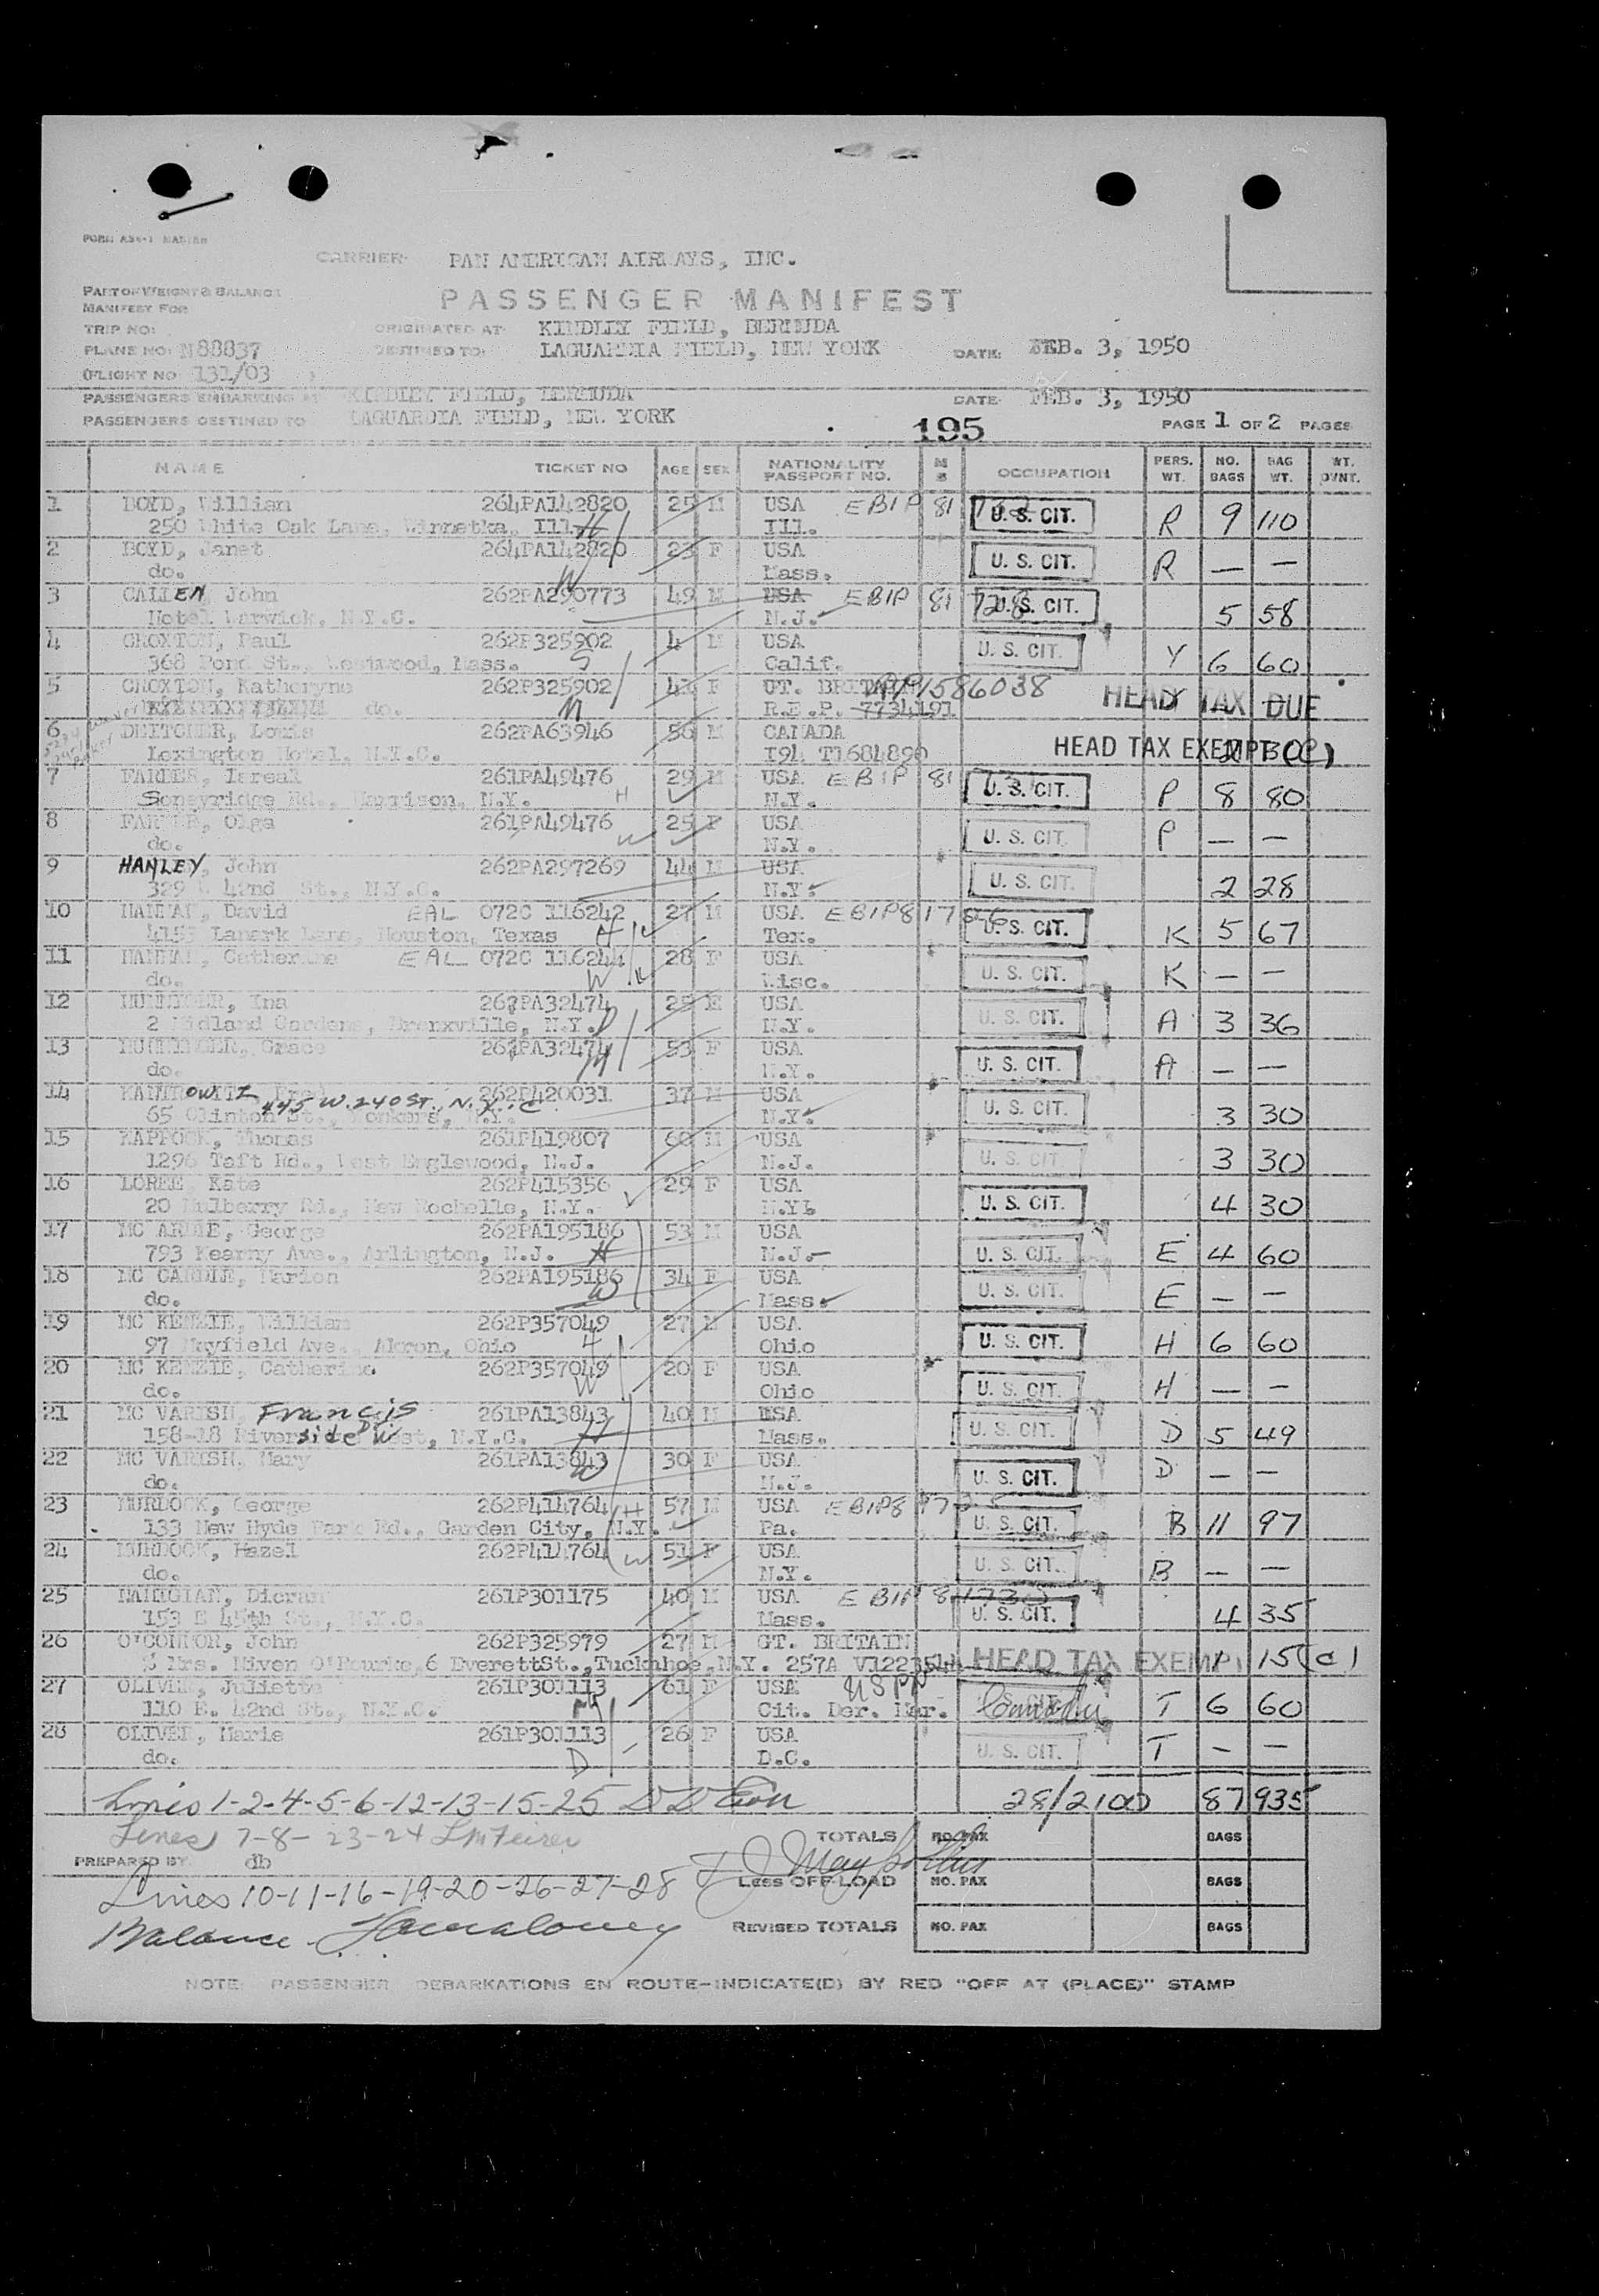 FORM
CARRIER PAN AMERICAN AIRWAYS, INC.
PART OF WEIGHT & BALANCE
MANIFEST FOR
PASSENGER MANIFEST
TRIP NO:
ORIGINATED AT KINDLEY FIELD, BERMUDA
PLANE NO: N88837
DESTINED TO: LAGUARDIA FIELD, NEW YORK DATE: FEB. 3, 1950
(FLIGHT NO 131/03 )
PASSENGERS EMBARKING AT KINDLEY FIELD, BERMUDA DATE FEB. 3, 1950
PASSENGERS DESTINED TO LAGUARDIA FIELD, NEW YORK 195 PAGE 1 OF 2 PAGES
NAME TICKET NO AGE SEX NATIONALITY PASSPORT NO. M S OCCUPATION PERS. WT. NO. BAGS BAG WT. WT. OVNT.
1 BOYD, William 264PA142820 25 M USA EBIP 81 U. S. CIT. R 9 110
250 White Oak Lane, Winnetka, Ill. H Ill.
2 BOYD, Janet 264PA142820 23 F USA U. S. CIT. R — —
do. W Mass.
3 CALLEN, John 262PA290773 49 M USA EBIP 81 728 U. S. CIT. 5 58
Hotel Warwick, N.Y.C. N.J.
4 CROXTON, Paul 262P325902 4 M USA U. S. CIT. Y 6 60
368 Pond St., Westwood, Mass. S Calif.
5 CROXTON, Katheryne 262P325902 41 F GT. BRITAIN PP1586038 HEAD TAX DUE
do. M R.E.P. 7734191
6 DEITCHER, Louis 262PA63946 56 M CANADA HEAD TAX EXEMPT (C)
Lexington Hotel, N.Y.C. I94 T1684890 2 30
7 FARBER, Isreal 261PA49476 29 M USA EBIP 81 U. S. CIT. P 8 80
Stoneyridge Rd., Harrison, N.Y. H N.Y.
8 FARBER, Olga 261PA49476 25 F USA U. S. CIT. P — —
do. W N.Y.
9 HANLEY, John 262PA297269 44 M USA U. S. CIT. 2 28
329 42nd St., N.Y.C. N.Y.
10 HANNAH, David EAL 072C 116242 27 M USA EBIP817 U. S. CIT. K 5 67
4153 Lanark Lane, Houston, Texas H Tex.
11 HANNAH, Catherine EAL 072C 116244 28 F USA U. S. CIT. K — —
do. W Wisc.
12 HUNNIGER, Ina 261PA32474 25 F USA U. S. CIT. A 3 36
2 Midland Gardens, Bronxville, N.Y. D N.Y.
13 HUNNIGER, Grace 261PA32474 53 F USA U. S. CIT. A — —
do. M N.Y.
14 KANTROWITZ, 262P420031 37 M USA U. S. CIT. 3 30
445 W. 240 ST. N.Y.C
65 Clinton St., Yonkers, N.Y. N.Y.
15 KAPPOCK, Thomas 261P419807 60 M USA U. S. CIT. 3 30
1296 Taft Rd., West Englewood, N.J. N.J.
16 LOREE, Kate 262P415356 29 F USA U. S. CIT. 4 30
20 Mulberry Rd., New Rochelle, N.Y. N.Y.
17 MC ARDLE, George 262PA195186 53 M USA U. S. CIT. E 4 60
793 Kearny Ave., Arlington, N.J. H N.J.
18 MC CARDLE, Marion 262PA195186 34 F USA U. S. CIT. E — —
do. W Mass.
19 MC KENZIE, William 262P357049 27 M USA U. S. CIT. H 6 60
97 Mayfield Ave., Akron, Ohio H Ohio
20 MC KENZIE, Catherine 262P357049 20 F USA U. S. CIT. H — —
do. W Ohio
21 MC VARISH, Francis 261PA13843 40 M USA U. S. CIT. D 5 49
158-18 Riverside West, N.Y.C. H Mass.
22 MC VARISH, Mary 261PA13843 30 F USA U. S. CIT. D — —
do. W N.J.
23 MURDOCK, George 262P414764 H 57 M USA EBIP8 U. S. CIT. B 11 97
133 New Hyde Park Rd., Garden City, N.Y. Pa.
24 MURDOCK, Hazel 262P414764 W 51 F USA U. S. CIT. B — —
do. N.Y.
25 NAHIGIAN, Dicran 261P301175 40 M USA EBIP 81730 U. S. CIT. 4 35
153 E 45th St., N.Y.C. Mass.
26 O'CONNOR, John 262P325979 27 M GT. BRITAIN HEAD TAX EXEMPT 1 15 (C)
% Mrs. Niven O'Rourke, 6 EverettSt., Tuckahoe, N.Y. 257A
27 OLIVER, Juliette 261P301113 61 F USA USPP U. S. CIT. T 6 60
110 E. 42nd St., N.Y.C. M Cit. Der. Mar.
28 OLIVER, Marie 261P301113 26 F USA U. S. CIT. T — —
do. D D.C.
Lines 1-2-4-5-6-12-13-15-25 28/2100 87 935
Lines 7-8-23-24 TOTALS NO. PAX BAGS
PREPARED BY db
Lines 10-11-16-19-20-26-27-28 LESS OFF LOAD NO. PAX BAGS
Balance REVISED TOTALS NO. PAX BAGS
NOTE: PASSENGER DEBARKATIONS EN ROUTE-INDICATE(D) BY RED "OFF AT (PLACE)" STAMP